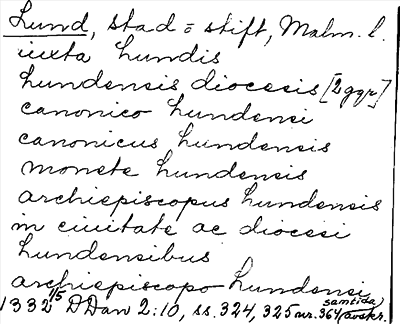 Lund, stad = stift, Malm. l.
iuxta Lundis
Lundensis diocesis [2 ggr]
canonico Lundensi
canonicus Lundensis
monete Lundensis
archiepiscopus Lundensis
in ciuitate ac diocesi
Lundensibus
archiepiscopo Lundensi
1332 1/5 DDan 2:10, ss. 324, 325 nr. 364 (samtida avskr.